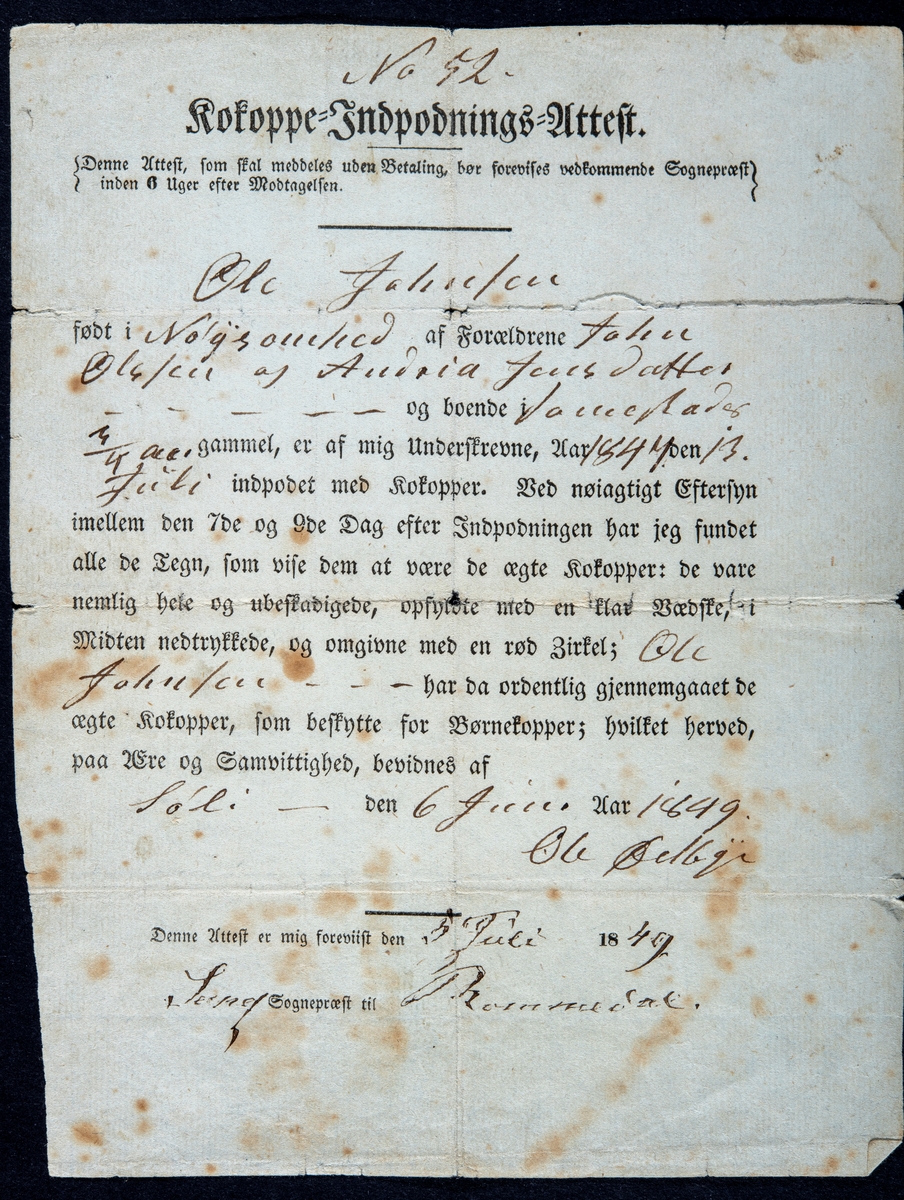 No 52.
Kokoppe-Indpodnings-Attest.
Denne Attest, som skal meddeles uden Betaling, bør forevises vedkommende Sognepræst
inden 6 Uger efter Modtagelsen.
Ole Johnsen
født i Nøÿsomhed af Forældrene John
Olssen og Andria Jensdatter
– – – – – og boende i Samestades
gammel, er af mig Underskrevne, Aar 1847 den 13.
Juli indpodet med Kokopper. Ved nøiagtigt Eftersyn
imellem den 7de og 9de Dag efter Indpodningen har jeg fundet
alle de Tegn, som vise dem at være de ægte Kokopper: de vare
nemlig hele og ubeskadigede, opfyldte med en klar Vædske, i
Midten nedtrykkede, og omgivne med en rød Zirkel; Ole
Johnsen – – – har da ordentlig gjennemgaaet de
ægte Kokopper, som beskytte for Børnekopper; hvilket herved,
paa Ære og Samvittighed, bevidnes af
Søli – den 6 Juni Aar 1849.
Ole
Denne Attest er mig foreviist den 5 Juli 1849
Sognepræst til Rommedal.